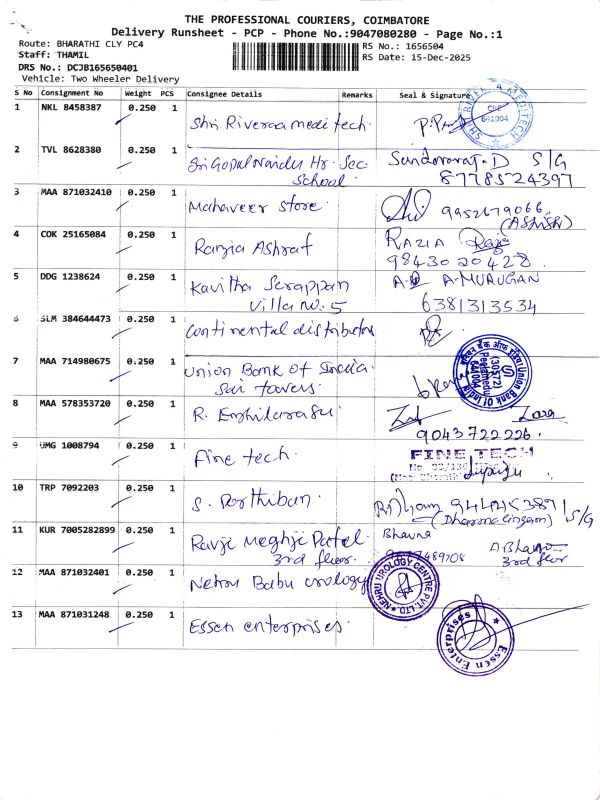 THE PROFESSIONAL COURIERS, COIMBATORE
Delivery Runsheet - PCP - Phone No.:9047080280 - Page No.:1
Route: BHARATHI CLY PC4
Staff: THAMIL
DRS No.: DCJB165650401
Vehicle: Two Wheeler Delivery
RS No.: 1656504
RS Date: 15-Dec-2025
S No Consignment No Weight PCS Consignee Details Remarks Seal & Signature
1 NKL 8458387 0.250 1 Shri Riveraa meditech.
SHRI RIVERAA MEDITECH
CBE
641004
2 TVL 8628380 0.250 1 Sri Gopal Naidu Hr. Sec School. Sundararaj.D S/G
8778524397
3 MAA 871032410 0.250 1 Mahaveer Store. 9952679066
(ASHISH)
4 COK 25165084 0.250 1 Razia Ashraf RAZIA
9843020428
5 DDG 1238624 0.250 1 Kavitha Serappan
Villa No. 5 A. MURUGAN
6381313534
6 SLM 384644473 0.250 1 Continental distributors
7 MAA 714980675 0.250 1 Union Bank Of India.
Sai towers.
यूनियन बैंक ऑफ इंडिया Union Bank Of India
(30572)
Peelamedu
641004
8 MAA 578353720 0.250 1 R. Ezhilarasu. Zara
9043722226.
9 UMG 1008794 0.250 1 Fine tech. FINE TECH
10 TRP 7092203 0.250 1 S. Parthiban.
(Dharmalingam) S/G
11 KUR 7005282899 0.250 1 Ravji Meghji Patel.
3rd floor. Bhavna
3rd flor
12 MAA 871032401 0.250 1 Nehru Babu urology
NEHRU UROLOGY CENTRE PVT. LTD
13 MAA 871031248 0.250 1 Essen enterprises.
Essen Enterprises